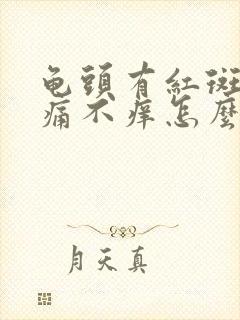 龟頭有紅斑
痛不痒怎麽
月天真